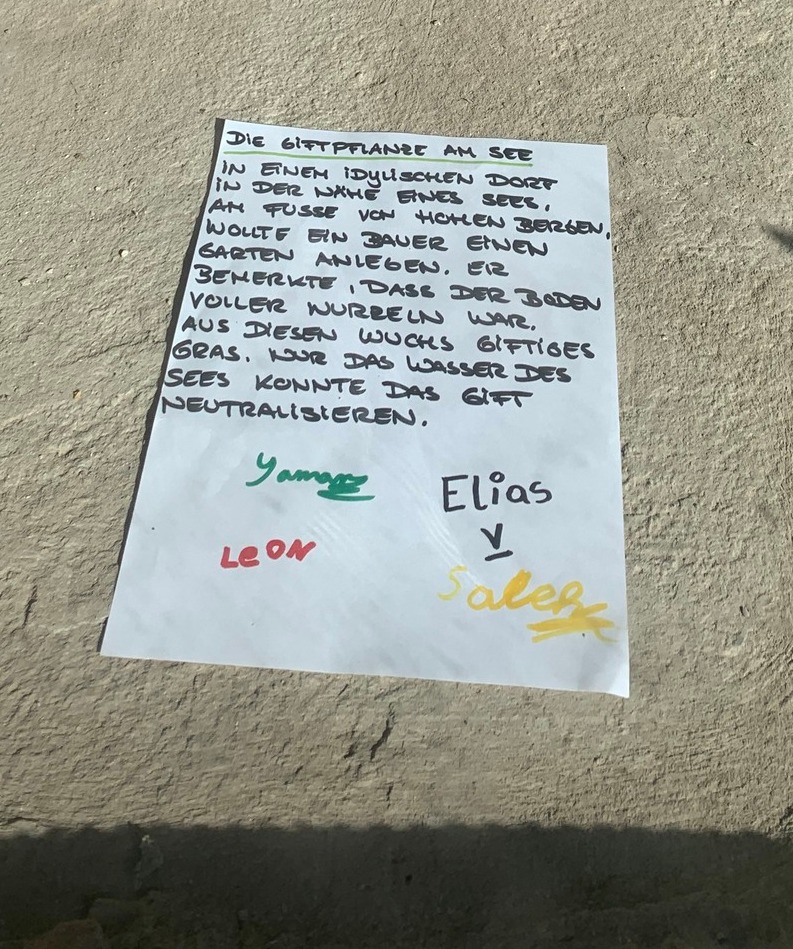 DIE GIFTPFLANZE AM SEE
IN EINEM IDYLISCHEN DORF
IN DER NÄHE EINES SEES,
AM FUSSE VON HOHEN BERGEN,
WOLLTE EIN BAUER EINEN
GARTEN ANLEGEN. ER
BEMERKTE, DASS DER BODEN
VOLLER WURZELN WAR.
AUS DIESEN WUCHS GIFTIGES
GRAS. NUR DAS WASSER DES
SEES KONNTE DAS GIFT
NEUTRALISIEREN.
Yaman
Elias
V
LEON
Saleh